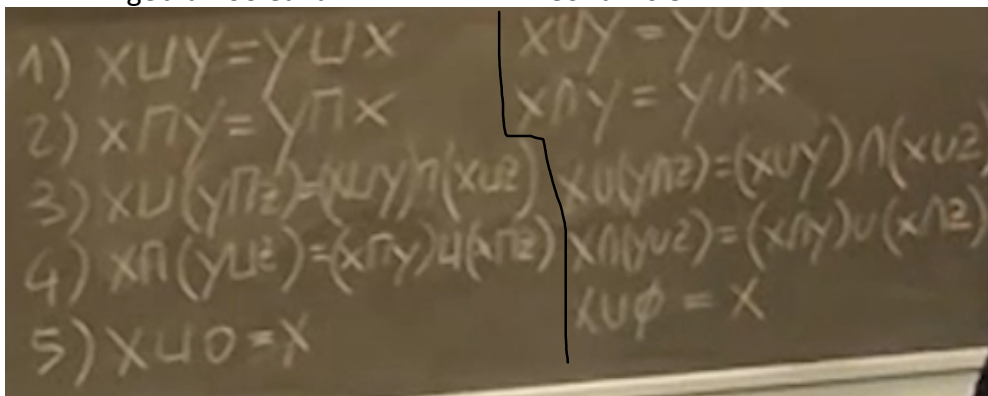 1) x⊔y=y⊔x
2) x⊓y=y⊓x
3) x⊔(y⊓z)=(x⊔y)⊓(x⊔z)
4) x⊓(y⊔z)=(x⊓y)⊔(x⊓z)
5) x⊔0=x
x∪y=y∪x
x∩y=y∩x
x∪(y∩z)=(x∪y)∩(x∪z)
x∩(y∪z)=(x∩y)∪(x∩z)
x∪φ=x